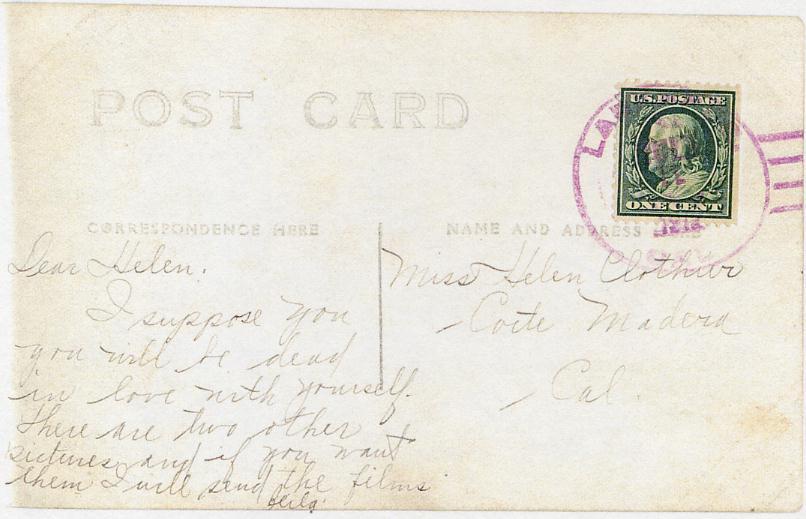 POST CARD
U.S. POSTAGE
ONE CENT
CORRESPONDENCE HERE
NAME AND ADDRESS
Dear Helen.
I suppose you
you will be dead
in love with yourself.
There are two other
pictures and if you want
them I will send the films
Miss Helen Clothier
Corte Madera
Cal.